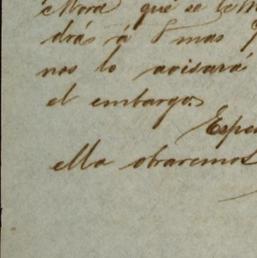 Mora que se le
drás á 8 mas
nos lo avisará
el embargo.
Espe
ella obraremos